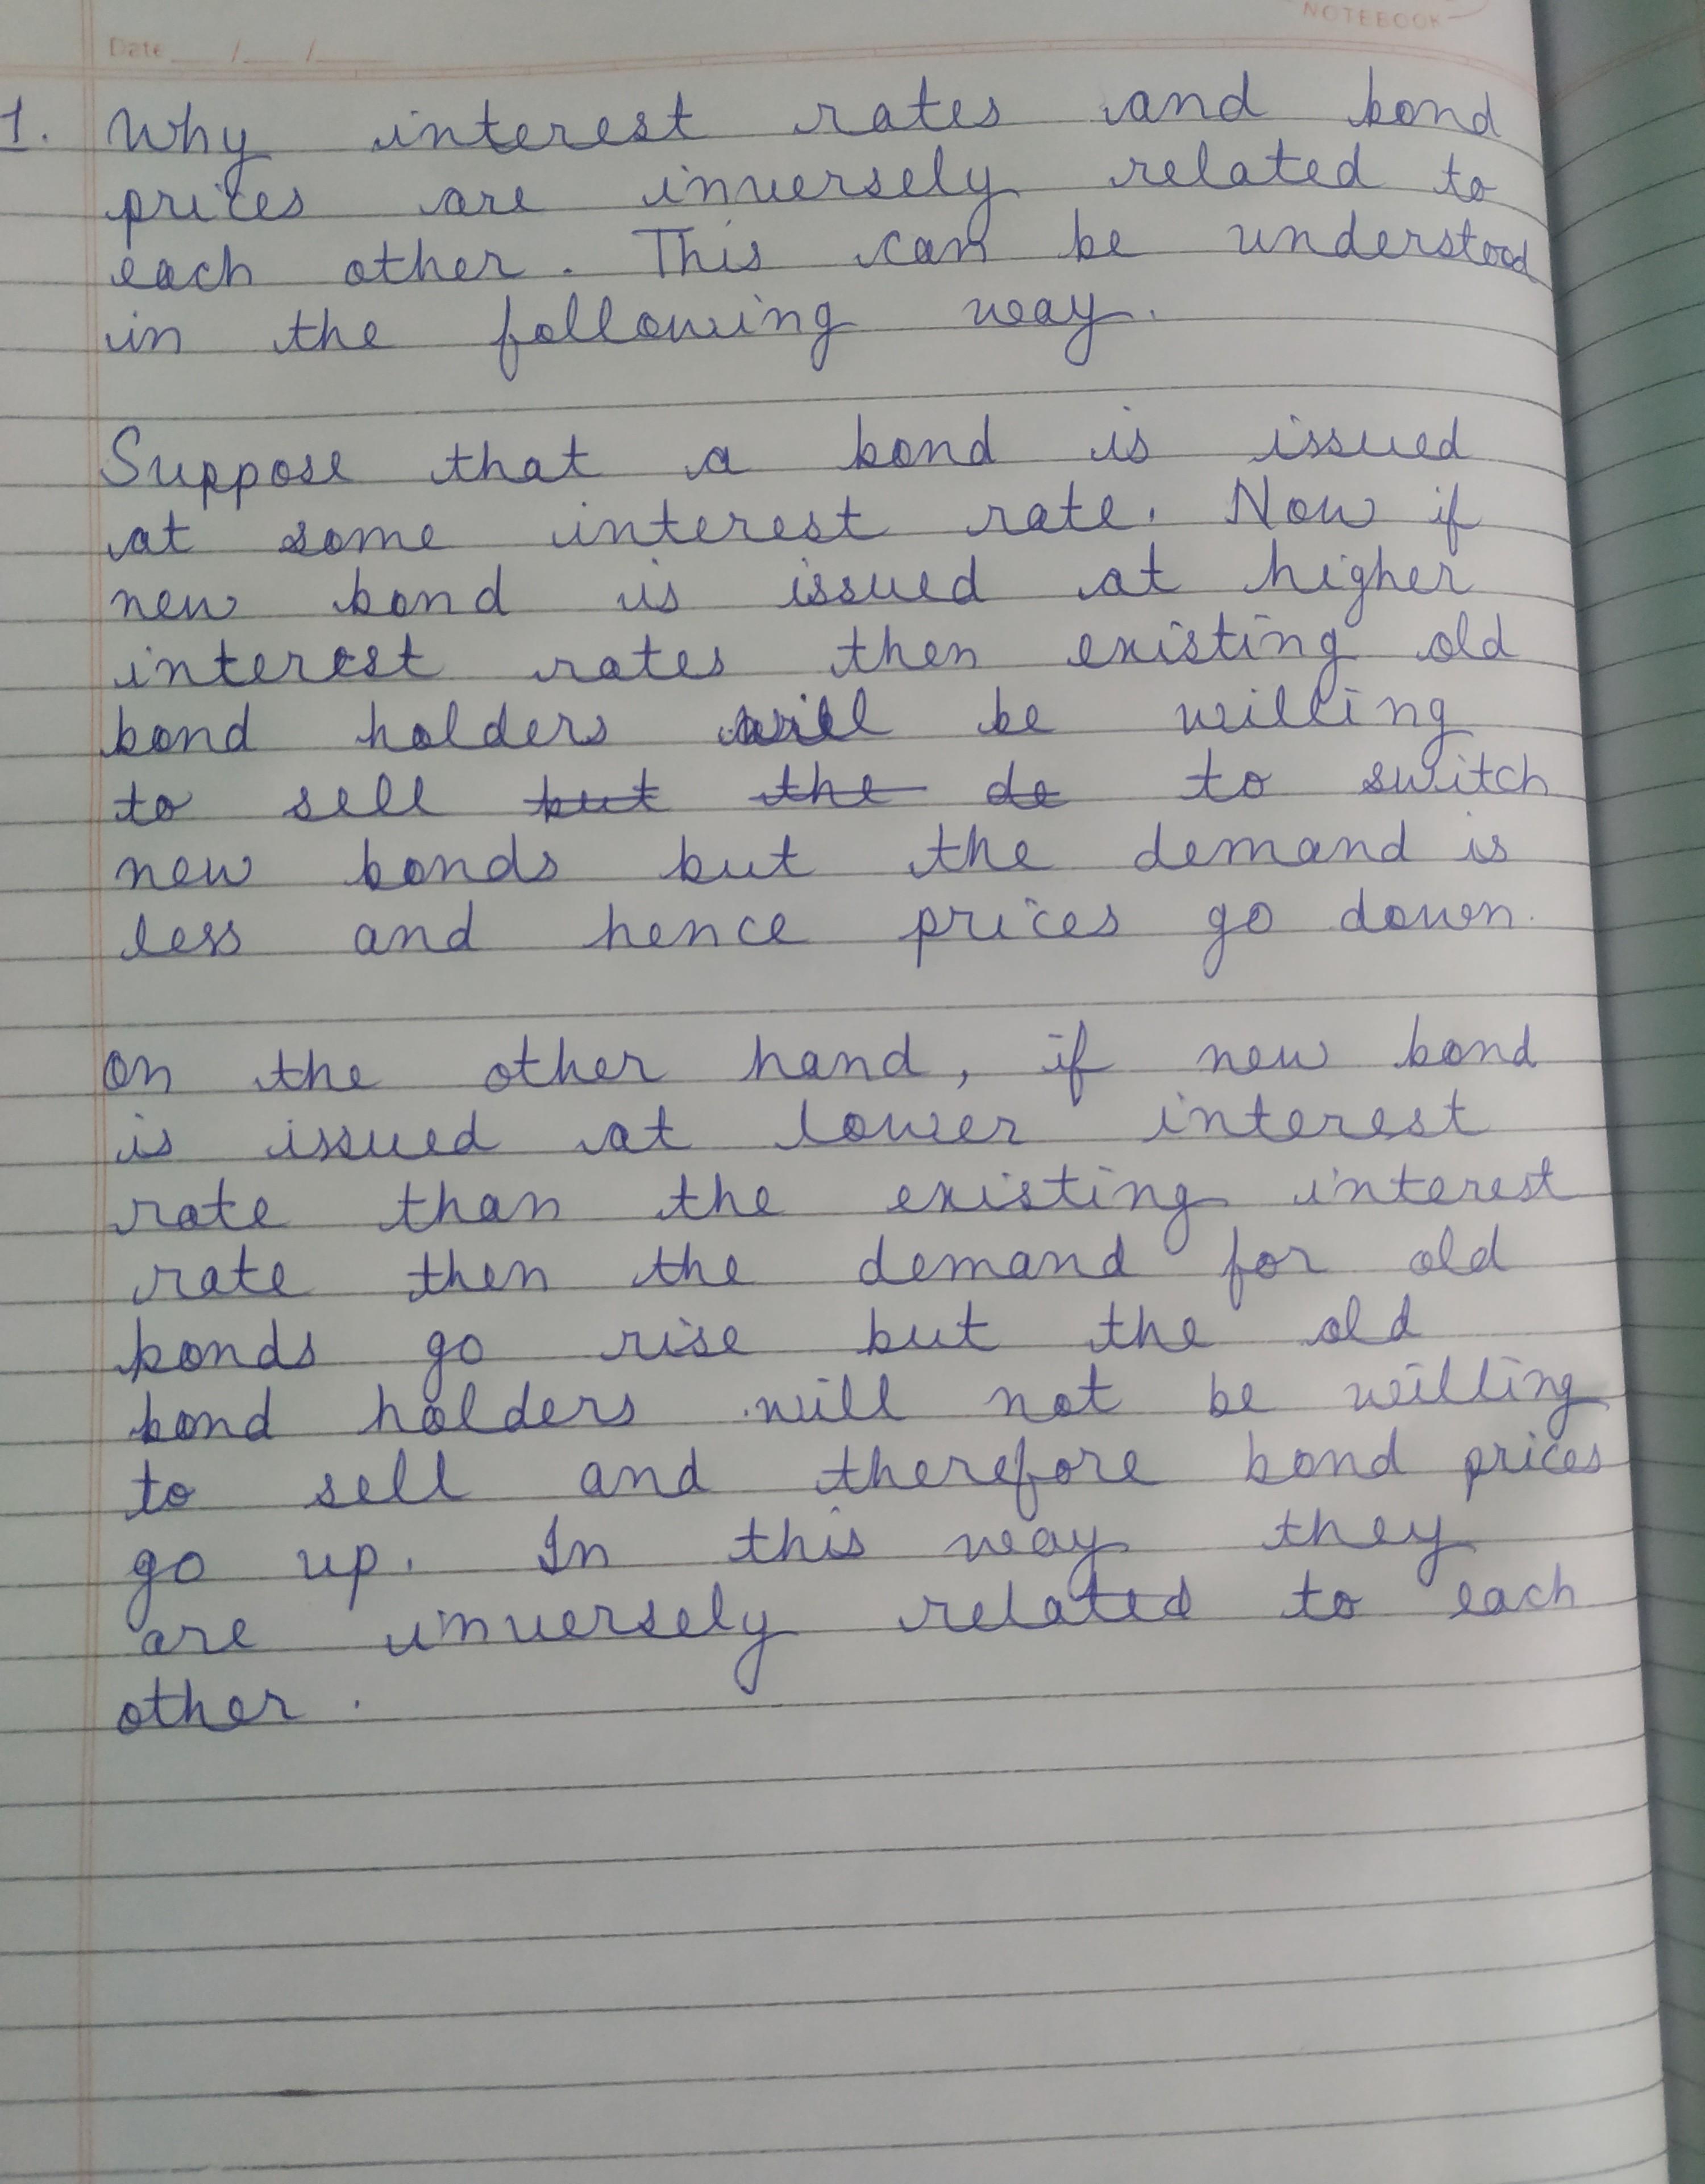 NOTEBOOK
Date __/__/__
1. Why interest rates and bond
prices are inversely related to
each other. This can be understood
in the following way.
Suppose that a bond is issued
at some interest rate. Now if
new bond is issued at higher
interest rates then existing old
bond holders will be willing
to sell but the de to switch
new bonds but the demand is
less and hence prices go down.
On the other hand, if new bond
is issued at lower interest
rate than the existing interest
rate then the demand for old
bonds go rise but the old
bond holders will not be willing
to sell and therefore bond prices
go up. In this way they
are inversely related to each
other.